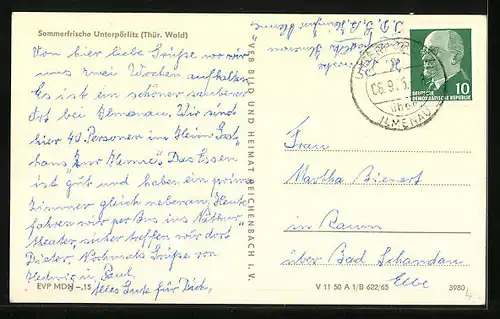 Sommerfrische Unterpörlitz (Thür. Wald)
Von hier liebe Grüße wo wir
uns zwei Wochen aufhalten.
Es ist ein schöner sauberer
Ort bei Ilmenau. Wir sind
hier 40 Personen im Heim Gast
haus "Zur Henne". Das Essen
ist gut und haben ein prima
Zimmer gleich nebenan. Heute
fahren wir per Bus ins Naturtheater,
sicher treffen wir dort
Dieter. Nochmals Grüße von
Hedwig u. Paul.
Alles Gute für Dich,
EVP MDN -,15
VEB BILD UND HEIMAT REICHENBACH I. V.
DEUTSCHE
DEMOKRATISCHE REPUBLIK
10
ILMENAU
Frau
Martha Bienert
in Raum
über Bad Schandau
Elbe
V 11 50 A 1/B 622/65
3980